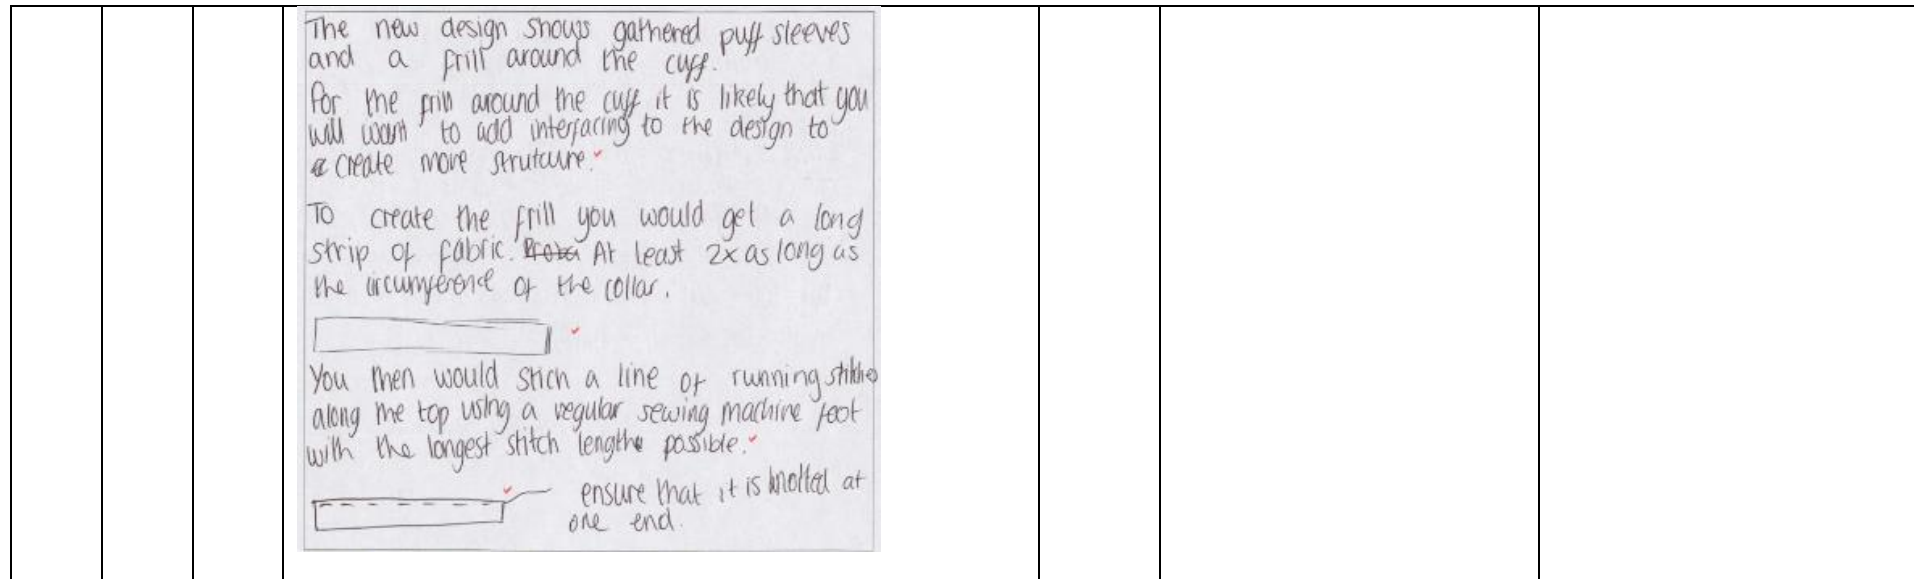 The new design shows gathered puff sleeves
and a frill around the cuff.
For the frill around the cuff it is likely that you
will want to add interfacing to the design to
create more strutcure.
To create the frill you would get a long
strip of fabric. At least 2x as long as
the circumference of the collar.
You then would stich a line of running stitches
along the top using a regular sewing machine foot
with the longest stitch lengths possible.
ensure that it is knotted at
one end.